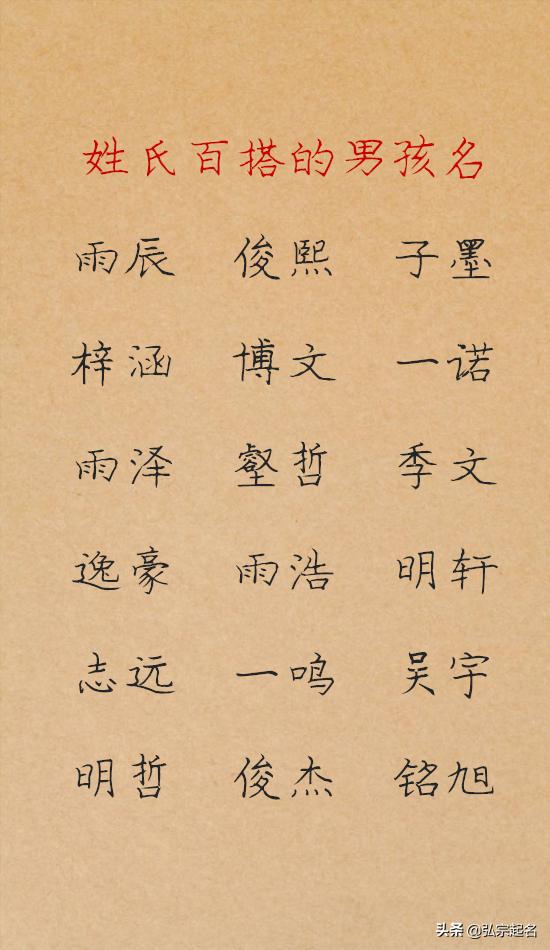 姓氏百搭的男孩名
雨辰 俊熙 子墨
梓涵 博文 一诺
雨泽 壑哲 季文
逸豪 雨浩 明轩
志远 一鸣 吴宇
明哲 俊杰 铭旭
头条 @弘宗起名